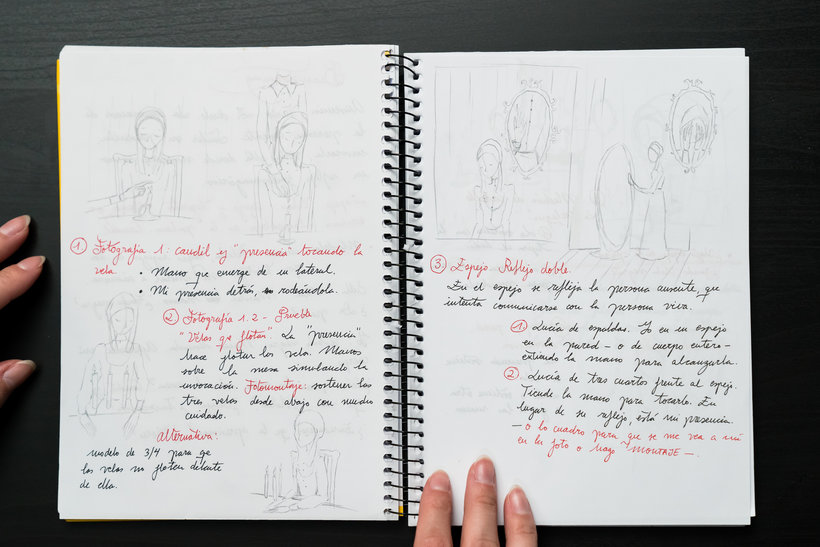 ① Fotografía 1: candil y "presencia" tocando la
vela.
• Mano que emerge de un lateral.
• Mi presencia detrás, rodeándola.
② Fotografía 1.2 - Prueba
"Velas que flotan". La "presencia"
hace flotar las velas. Manos
sobre la mesa simulando la
invocación. Fotomontaje: sostener las
tres velas desde abajo con mucho
cuidado.
alternativa:
modelo de 3/4 para que
las velas no floten delante
de ella.
③. Espejo. Reflejo doble.
En el espejo se refleja la persona ausente, que
intenta comunicarse con la persona viva.
① Lucía de espaldas. Yo en un espejo
en la pared - o de cuerpo entero -
extiendo la mano para alcanzarla.
② Lucía de tres cuartos frente al espejo.
Tiende la mano para tocarlo. En
lugar de su reflejo, está mi presencia.
- o lo cuadro para que se me vea a mí
en la foto o hago MONTAJE -.